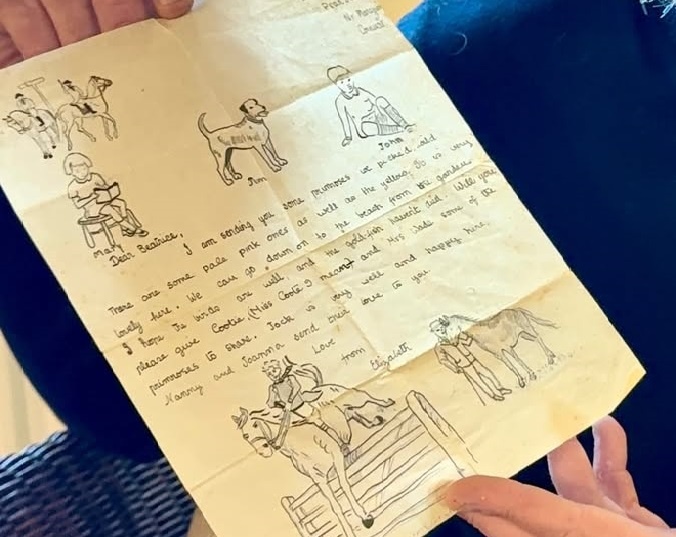 Nr
John
Jim
Mary
Dear Beatrice,
I am sending you some primroses we picked
There are some pale pink ones as well as the yellow. It is very
lovely here. We can go down on to the beach from the garden.
I hope the birds are well, and the gold-fish haven't died. Will you
please give Cootie, (Miss Coote I meant) and Mrs some of the
primroses to share. Jock is very well and happy here.
Nanny and Joanna send their love to you.
Love
from Elizabeth